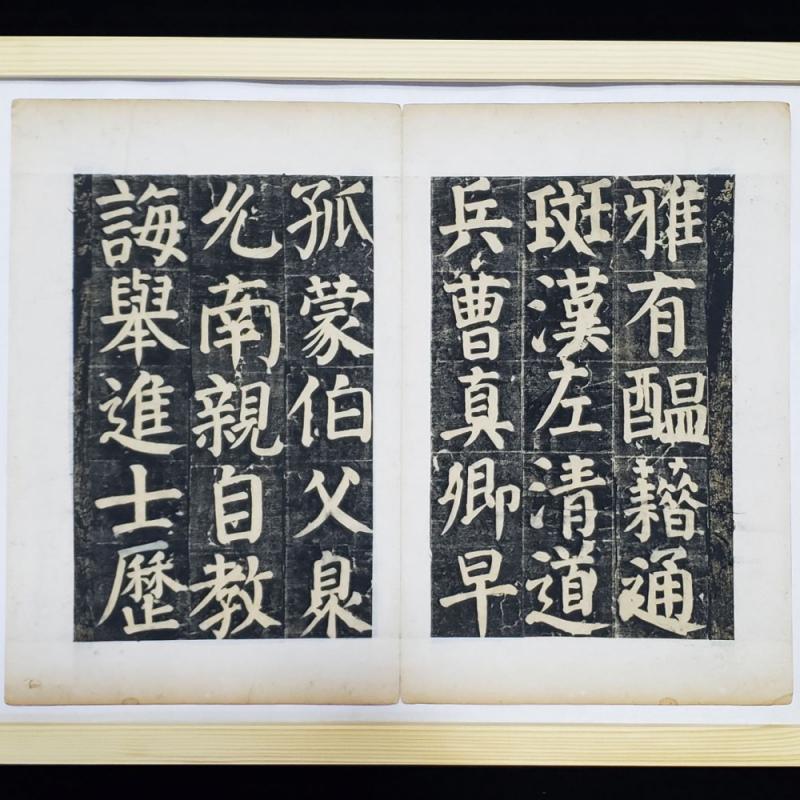 雅有醖藉通
斑漢左清道
兵曹真卿早
孤蒙伯父臮
允南親自教
誨舉進士歷